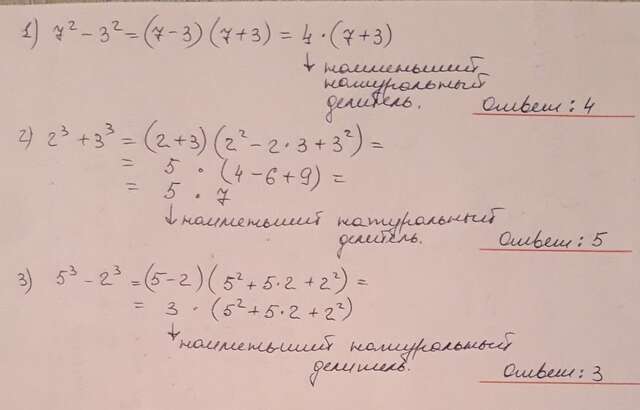 1) 7² - 3² = (7-3) (7+3) = 4 · (7+3)
↓ наименьший
натуральный
делитель. Ответ: 4
2) 2³ + 3³ = (2+3) (2² - 2·3 + 3²) =
= 5 · (4-6+9) =
= 5 · 7
↓ наименьший натуральный
делитель. Ответ: 5
3) 5³ - 2³ = (5-2) (5² + 5·2 + 2²) =
= 3 · (5² + 5·2 + 2²)
↓ наименьший натуральный
делитель. Ответ: 3